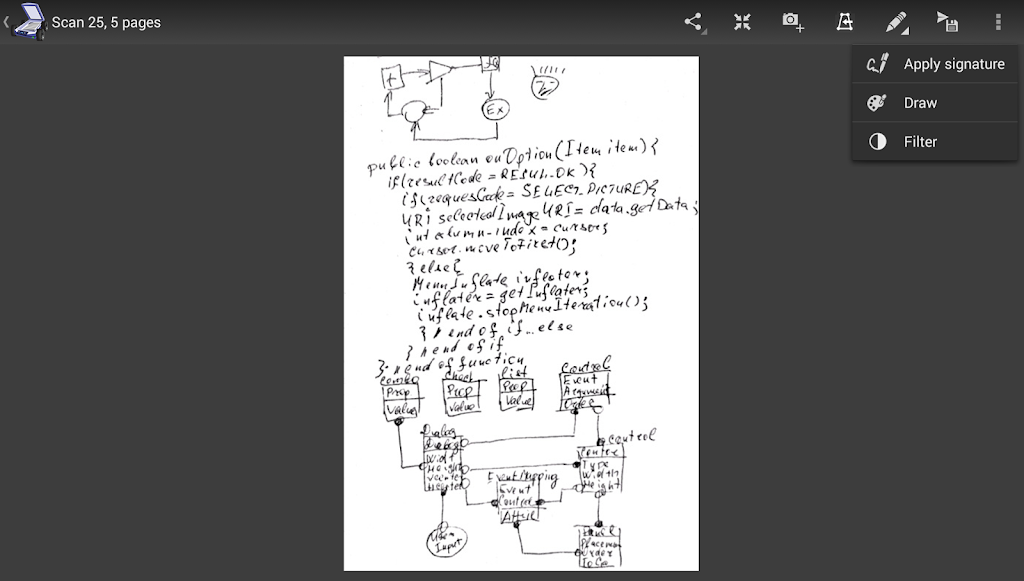 Scan 25, 5 pages
Apply signature
Draw
Filter
+
Ex
public boolean onOption(Item item){
if(resultCode = RESUL_OK){
if(requesCode = SELECT_PICTURE){
URI selectedImageURI = data.getData;
int column-index = cursor;
cursor.moveToFirst();
}else{
MenuInflate inflator;
inflater = getInflater;
inflate.stopMenuIteration();
} end of if...else
} end of if
}; end of function
Combo
Prop
Value
Check
Prop
Value
List
Prop
Value
Control
Event
Argument
Order
Dialog
Dialog
Widt
Height
control
Type
Width
Height
EventMapping
Event
Control
User
Input
Placemen
order